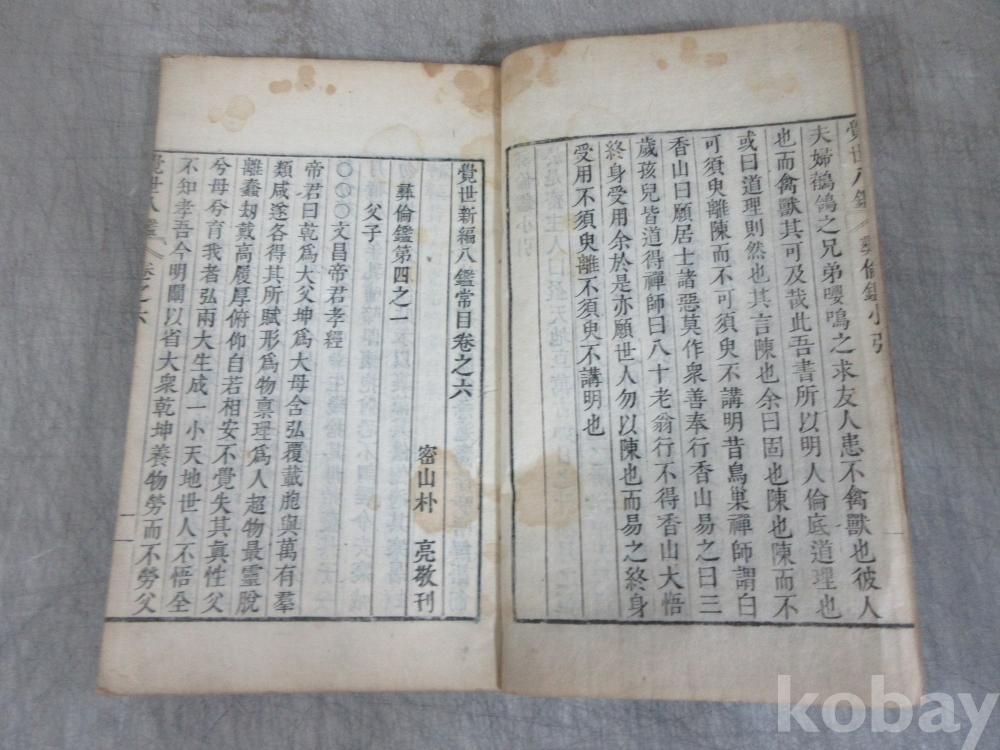 覺世八鑑 彛倫鑑小引
夫婦鶺鴒之兄弟嚶鳴之求友人患不禽獸也彼人
也而禽獸其可及哉此吾書所以明人倫底道理也
或曰道理則然也其言陳也余曰固也陳也陳而不
可須臾離陳而不可須臾不講明昔鳥巢禪師謂白
香山曰願居士諸惡莫作衆善奉行香山易之曰三
歲孩兒皆道得禪師曰八十老翁行不得香山大悟
終身受用余於是亦願世人勿以陳也而易之終身
受用不須臾離不須臾不講明也
覺世新編八鑑常目卷之六
密山朴 亮敬刊
彛倫鑑第四之一
父子
〇〇〇文昌帝君孝經
帝君曰乾爲大父坤爲大母含弘覆載胞與萬有羣
類咸遂各得其所賦形爲物稟理爲人超物最靈脫
離蠢刼戴高履厚俯仰自若相安不覺失其眞性父
兮母兮育我者弘兩大生成一小天地世人不悟全
不知孝吾今明闡以省大衆乾坤養物勞而不勞父
覺世八鑑 卷之六
kobay